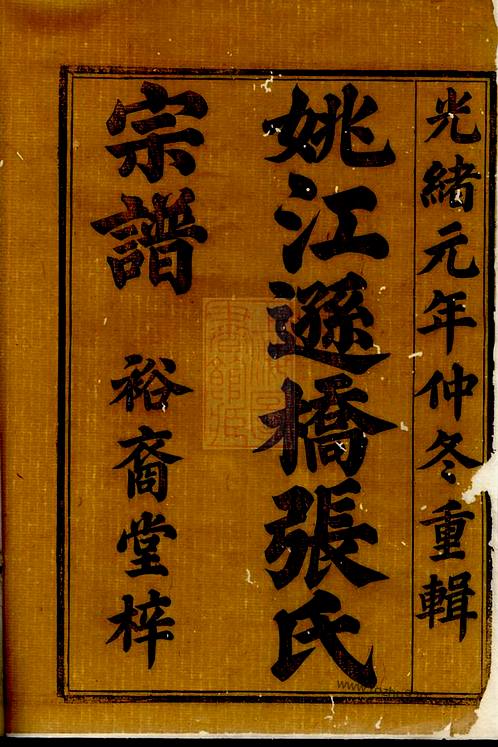 光緒元年仲冬重輯
姚江遜橋張氏
宗譜
裕裔堂梓